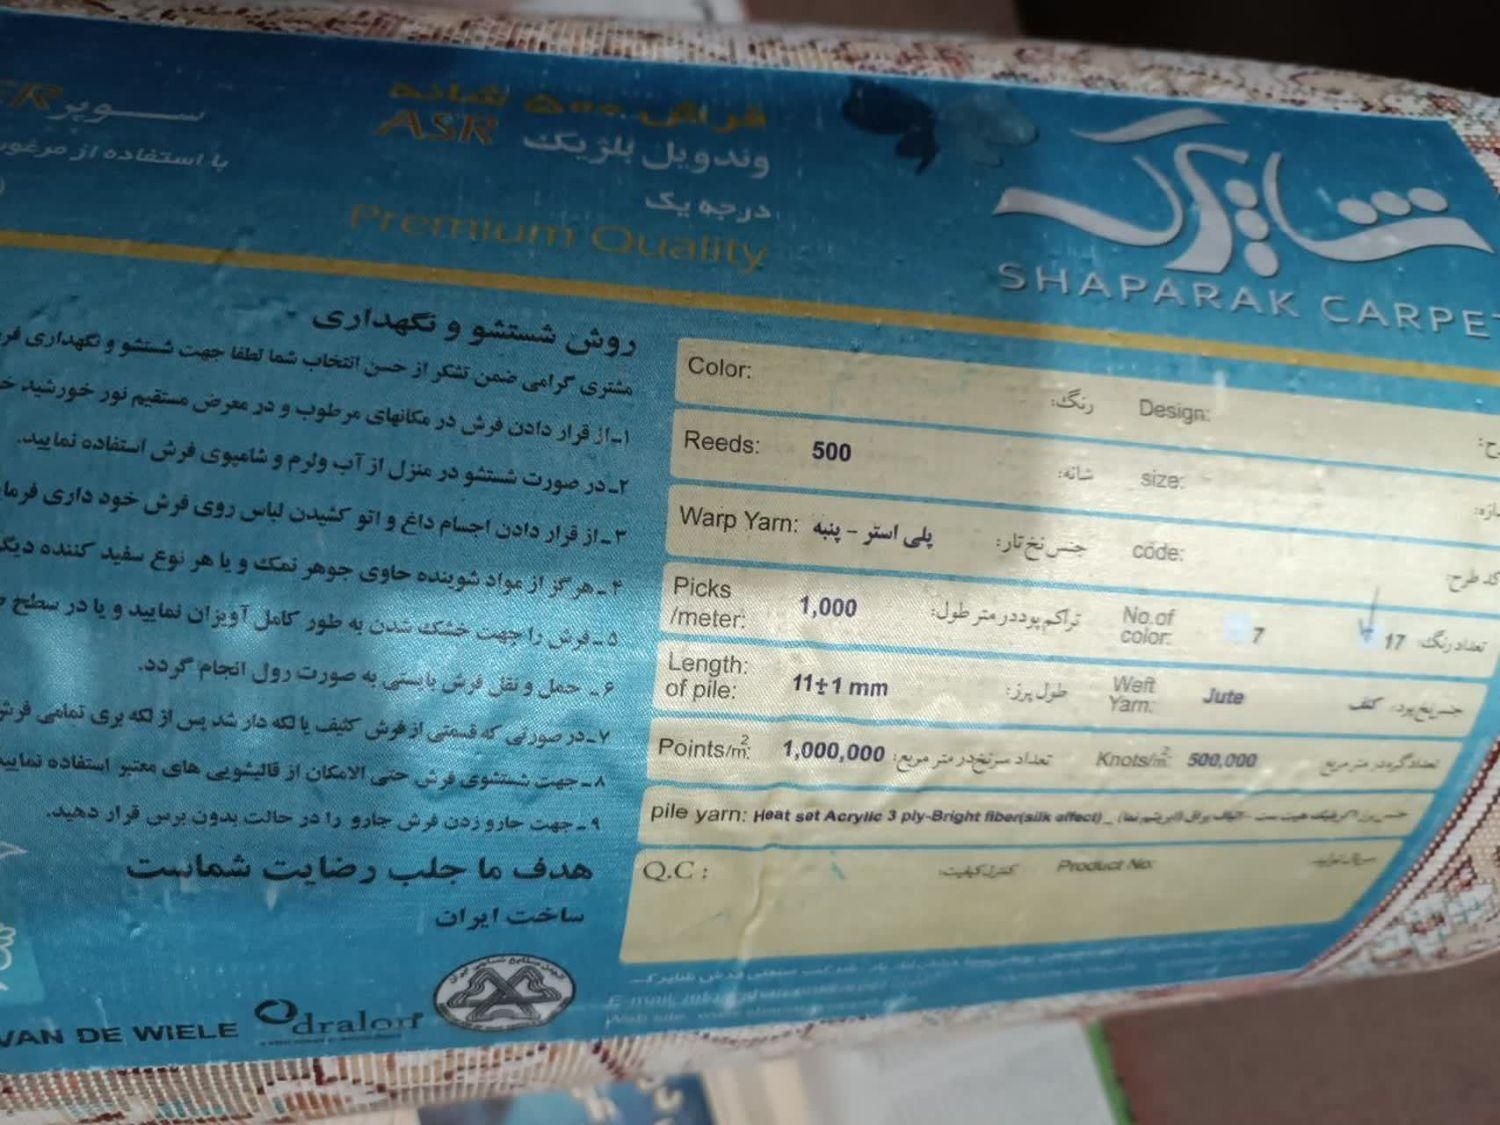 شاپرک
SHAPARAK CARPE
۵۰۰ شانه
وندویل بلژیک ASR
درجه یک
Premium Quality
سوپر ER
با استفاده از مرغو
روش شستشو و نگهداری
مشتری گرامی ضمن تشکر از حسن انتخاب شما لطفا جهت شستشو و نگهداری فر
۱-از قرار دادن فرش در مکانهای مرطوب و در معرض مستقیم نور خورشید خ
۲-در صورت شستشو در منزل از آب ولرم و شامپوی فرش استفاده نمایید.
۳-از قرار دادن اجسام داغ و اتو کشیدن لباس روی فرش خود داری فرما
۴-هرگز از مواد شوینده حاوی جوهر نمک و یا هر نوع سفید کننده دیگ
۵-فرش را جهت خشک شدن به طور کامل آویزان نمایید و یا در سطح
۶- حمل و نقل فرش بایستی به صورت رول انجام گردد.
۷-در صورتی که قسمتی از فرش کثیف یا لکه دار شد پس از لکه بری تمامی فرش
۸-جهت شستشوی فرش حتی الامکان از قالیشویی های معتبر استفاده نمایید
۹-جهت جارو زدن فرش جارو را در حالت بدون برس قرار دهید.
هدف ما جلب رضایت شماست
ساخت ایران
VAN DE WIELE
dralon
Color: رنگ: Design:
Reeds: 500 شانه: size:
Warp Yarn: پلی استر - پنبه جنس نخ تار: code: کد طرح:
Picks /meter: 1,000 تراکم پود در متر طول: No.of color: 7 17 تعداد رنگ:
Length: of pile: 11±1 mm طول پرز: Weft Yarn: Jute کنف جنس نخ پود:
Points/m²: 1,000,000 تعداد سرنخ در متر مربع: Knots/m²: 500,000 تعداد گره در متر مربع
pile yarn: Heat set Acrylic 3 ply-Bright fiber(silk effect)_
Q.C : کنترل کیفیت: Product No: